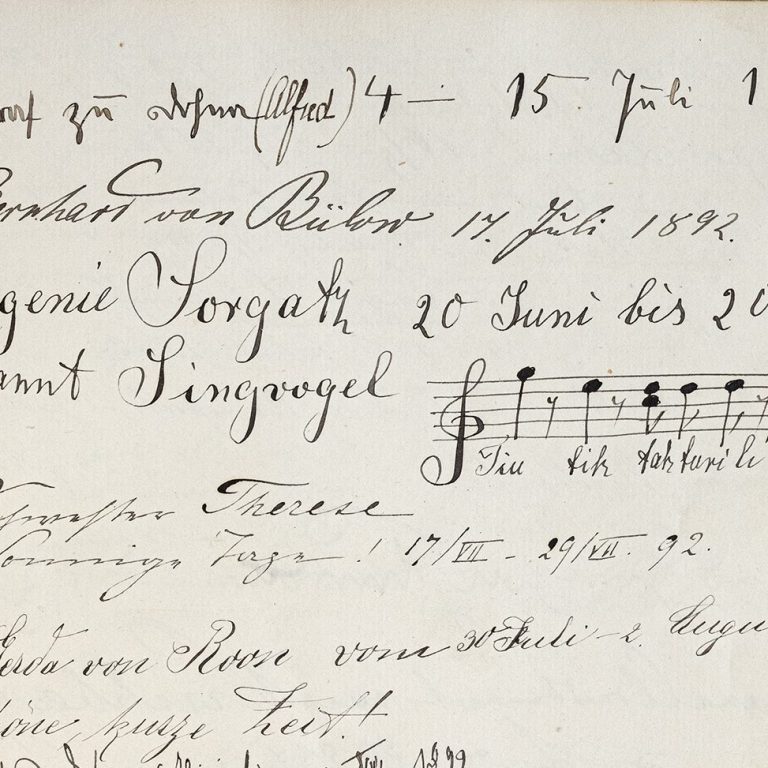 zu Dohna (Alfred) 4 — 15 Juli 1
ernhard von Bülow 17. Juli 1892.
genie Sorgatz 20 Juni bis 20
annt Singvogel
Tiu tik taktavi li
chwester Therese
onnige Tage! 17/VII - 29/VII. 92.
Gerda von Roon vom 30 Juli - 2. Augu
öne, kurze Zeit!